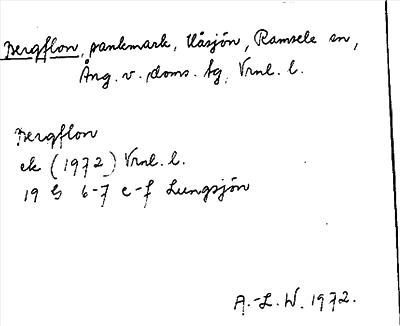 Bergflon, sankmark, Uåsjön, Ramsele sn,
Ång. v. doms. tg, Vrnl. l.
Bergflon
ek (1972) Vrnl. l.
19 G 6-7 e-f Lungsjön
A.-L. W. 1972.